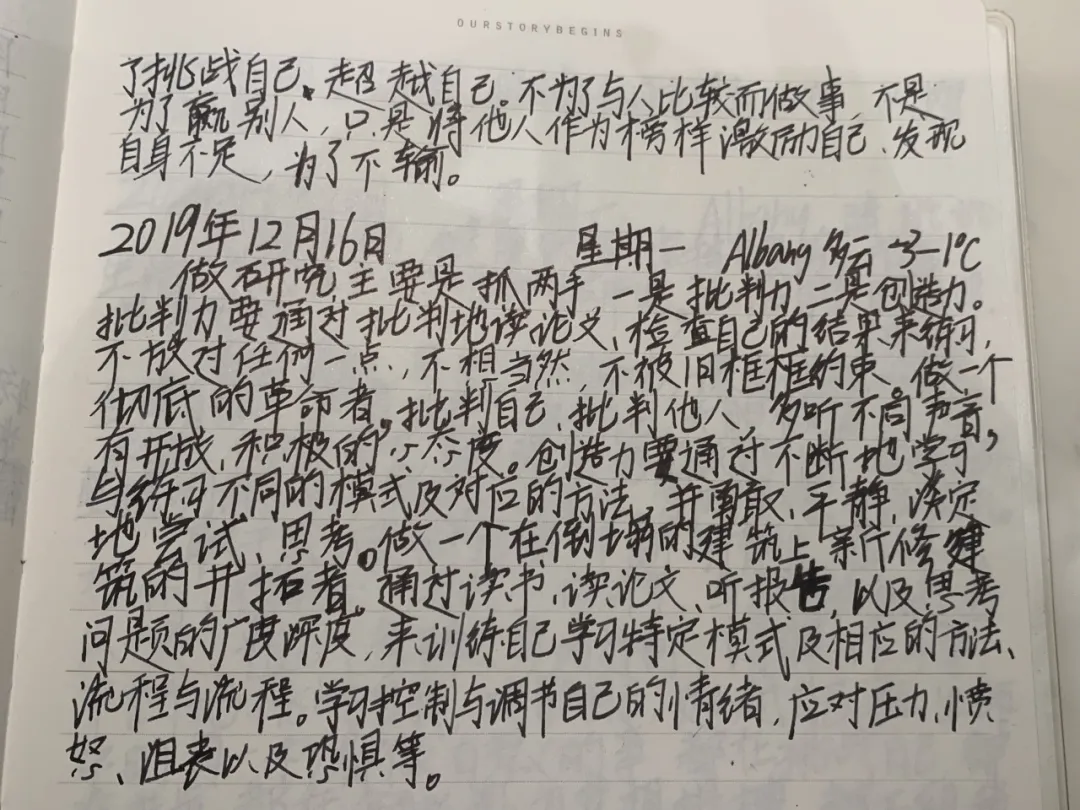 OURSTORYBEGINS
了挑战自己、超越自己。不为了与人比较而做事,不是
为了赢别人,只是将他人作为榜样激励自己、发现
自身不足,为了不输。
2019年12月16日 星期一 Albany 多云 -3–1℃
做研究主要是抓两手,一是批判力,二是创造力。
批判力要通过批判地读论文、检查自己的结果来练习,
不放过任何一点,不想当然,不被旧框框约束。做一个
彻底的革命者,批判自己,批判他人,多听不同声音,
有开放、积极的心态度。创造力要通过不断地学习,
与练习不同的模式及对应的方法,并勇敢、平静、淡定
地尝试、思考。做一个在倒塌的建筑上新修建
筑的开拓者。通过读书、读论文、听报告,以及思考
问题的广度深度,来训练自己学习特定模式及相应的方法、
流程与流程。学习控制与调节自己的情绪,应对压力、愤
怒、沮丧以及恐惧等。